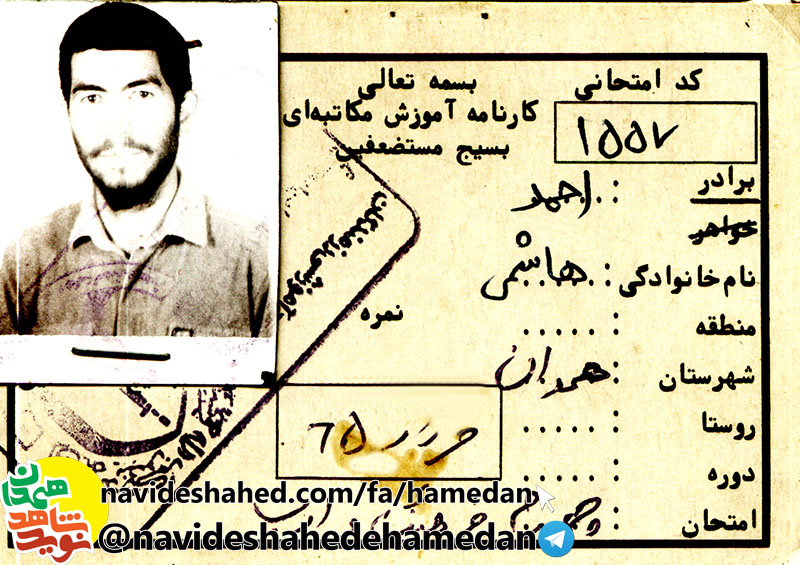 بسمه تعالی
کارنامه آموزش مکاتبه‌ای
بسیج مستضعفین
کد امتحانی
۱۵۵۷
برادر : احمد
خواهر
نام‌خانوادگی : هاشمی
منطقه : .....
شهرستان : همدان
روستا : .....
دوره : .....
امتحان :
نمره
navideshahed.com/fa/hamedan
@navideshahedehamedan
نوید شاهد
همدان